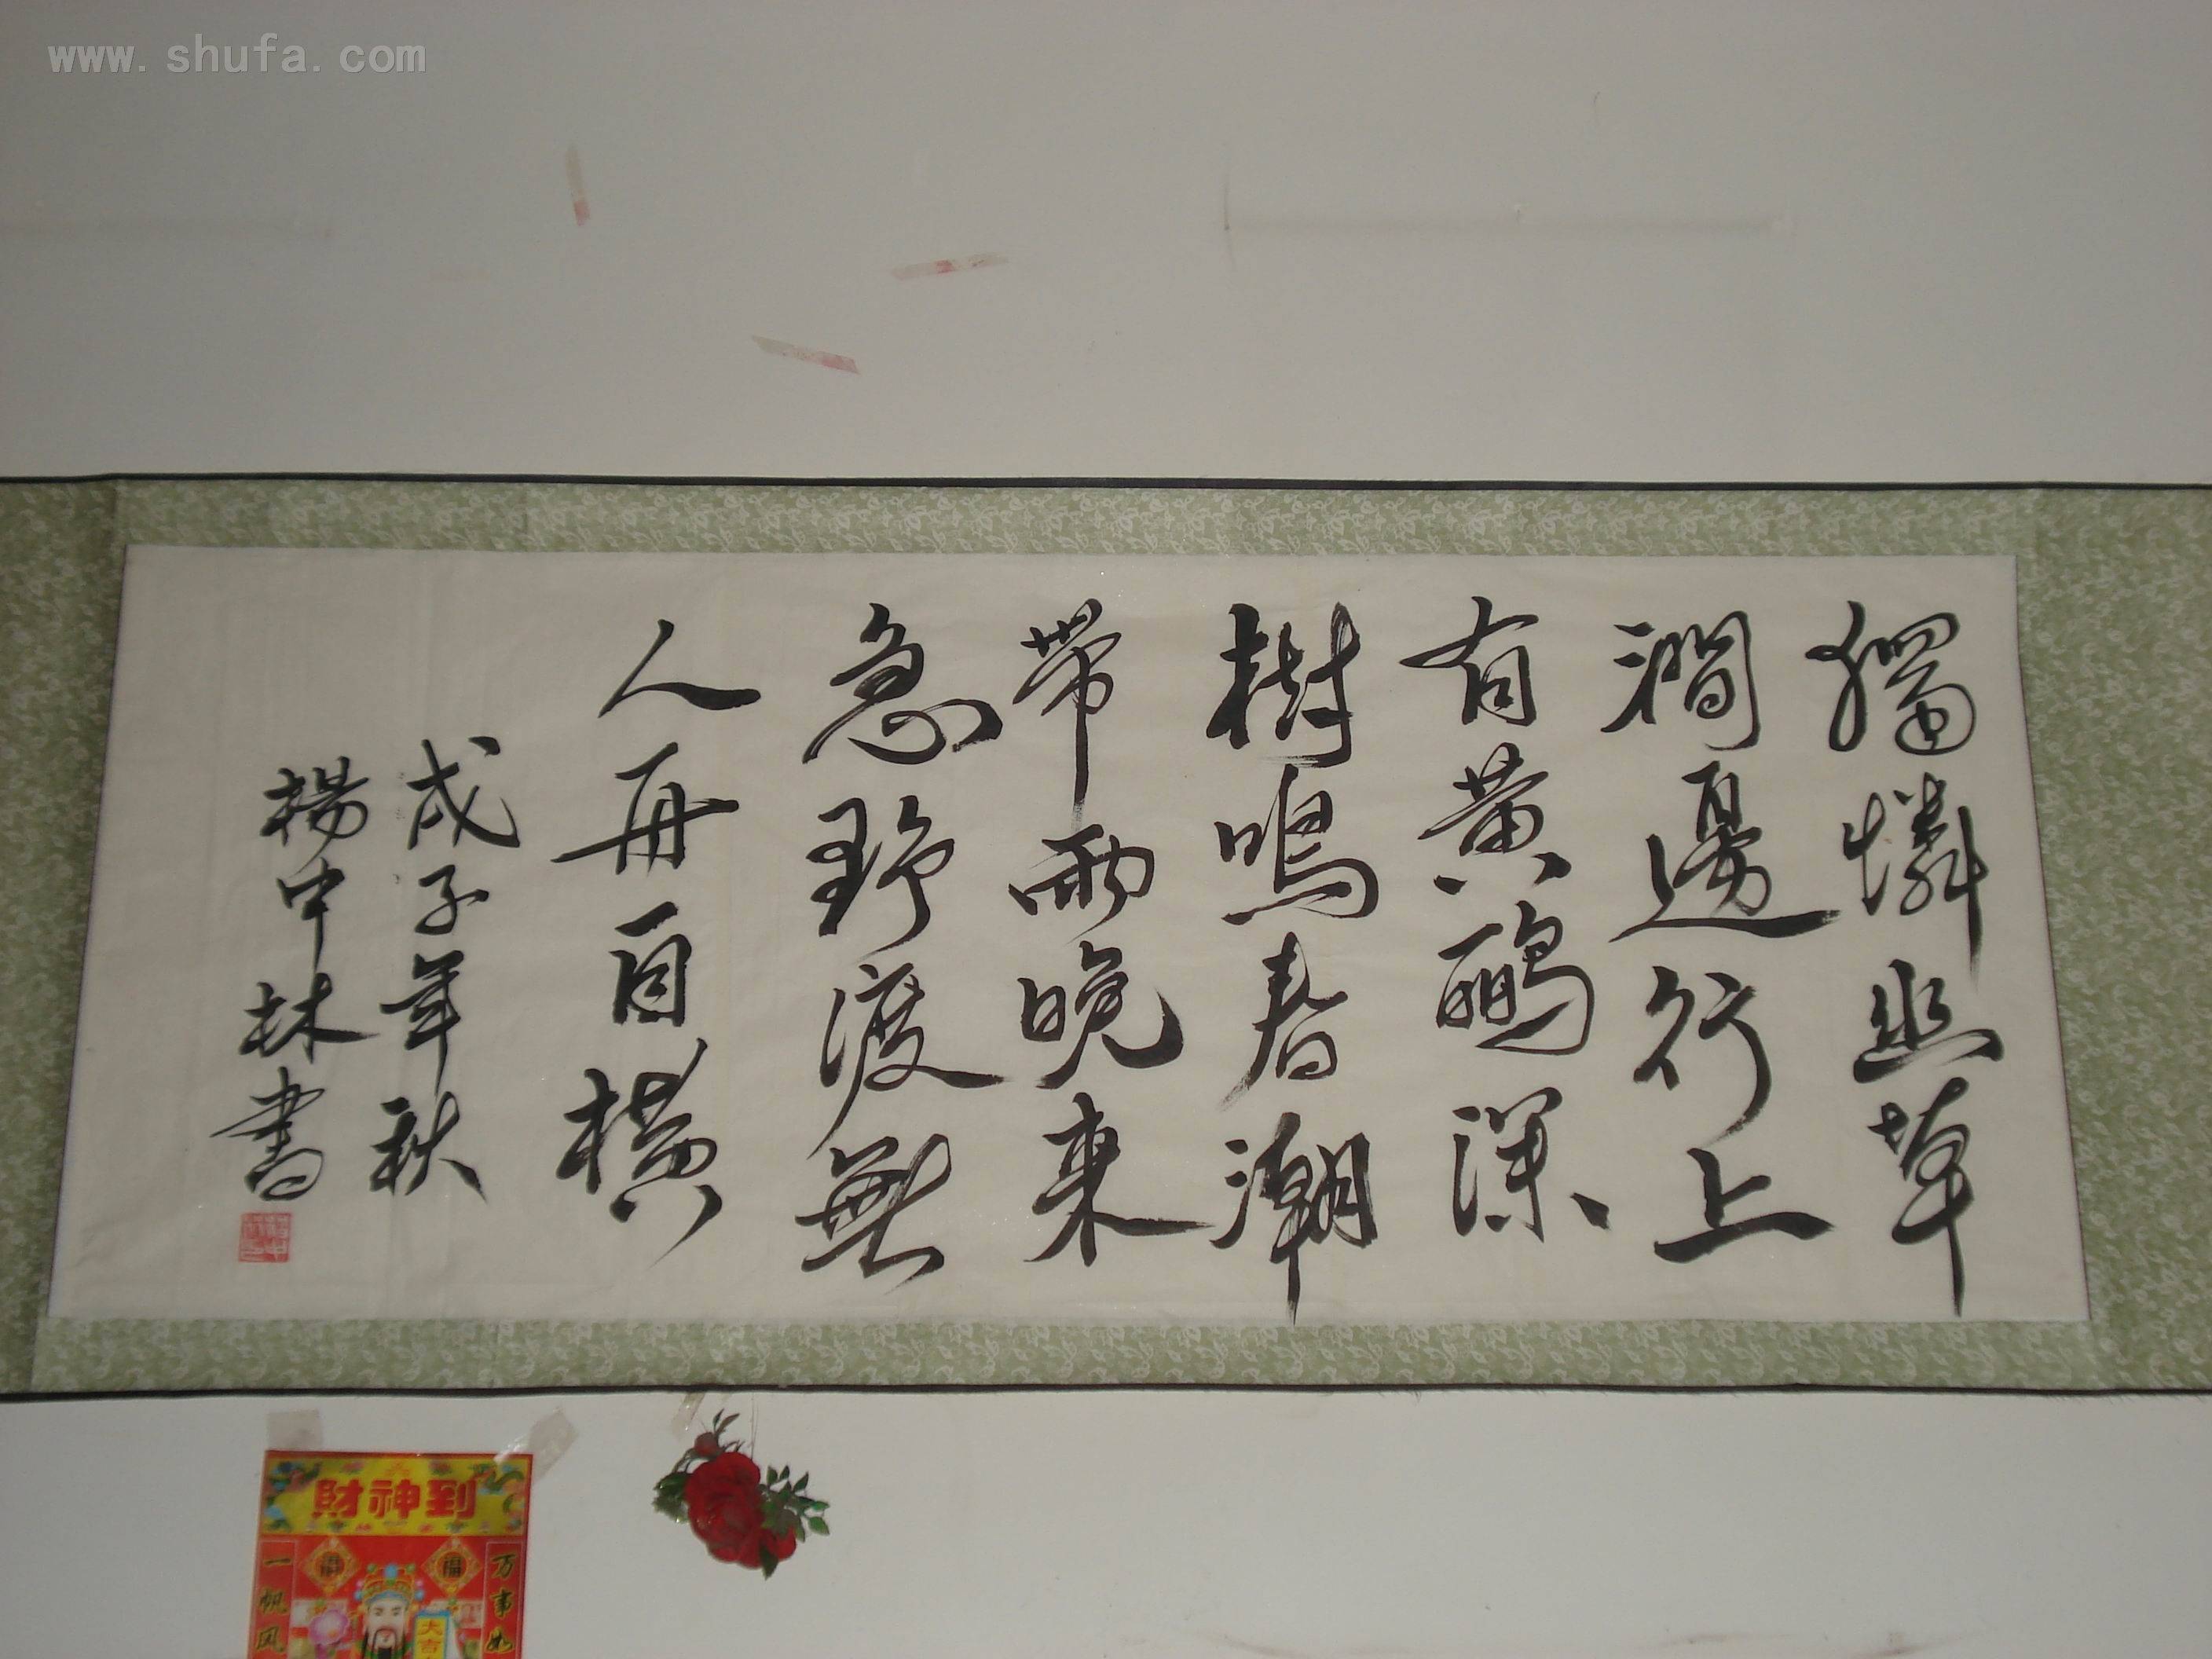 www.shufa.com
獨憐幽草
澗邊行上
有黄鸝深
樹鳴春潮
帶雨晚来
急野渡無
人舟自横
戊子年秋
楊中林書
財神到
一帆风
万事如
大吉